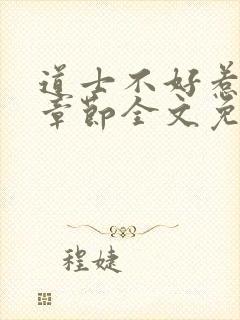 道士不好惹
章节全文免
程婕